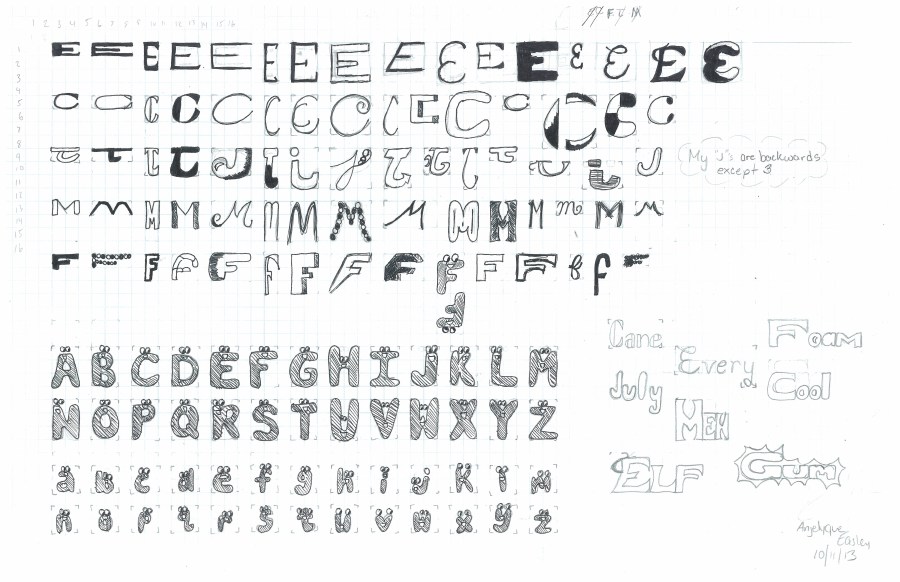 1 2 3 4 5 6 7 8 9 10 11 12 13 14 15 16
1
2
3
4
5
6
7
8
9
10
11
12
13
14
15
16
E E E E E E E E E E E E E E E E E
C C C C C C C C C C C C C C C
J J J J J J J J J J J J J J J
My "J"s are backwards
except 3
M M M M M M M M M M M M M M M
F F F F F F F F F F F F f f F
F
A B C D E F G H I J K L M
N O P Q R S T U V W X Y Z
a b c d e f g h i j k l m
n o p q r s t u v w x y z
Cane
Foam
Every
July
Cool
Meh
Elf
Gum
Anjelique
Easley
10/11/13